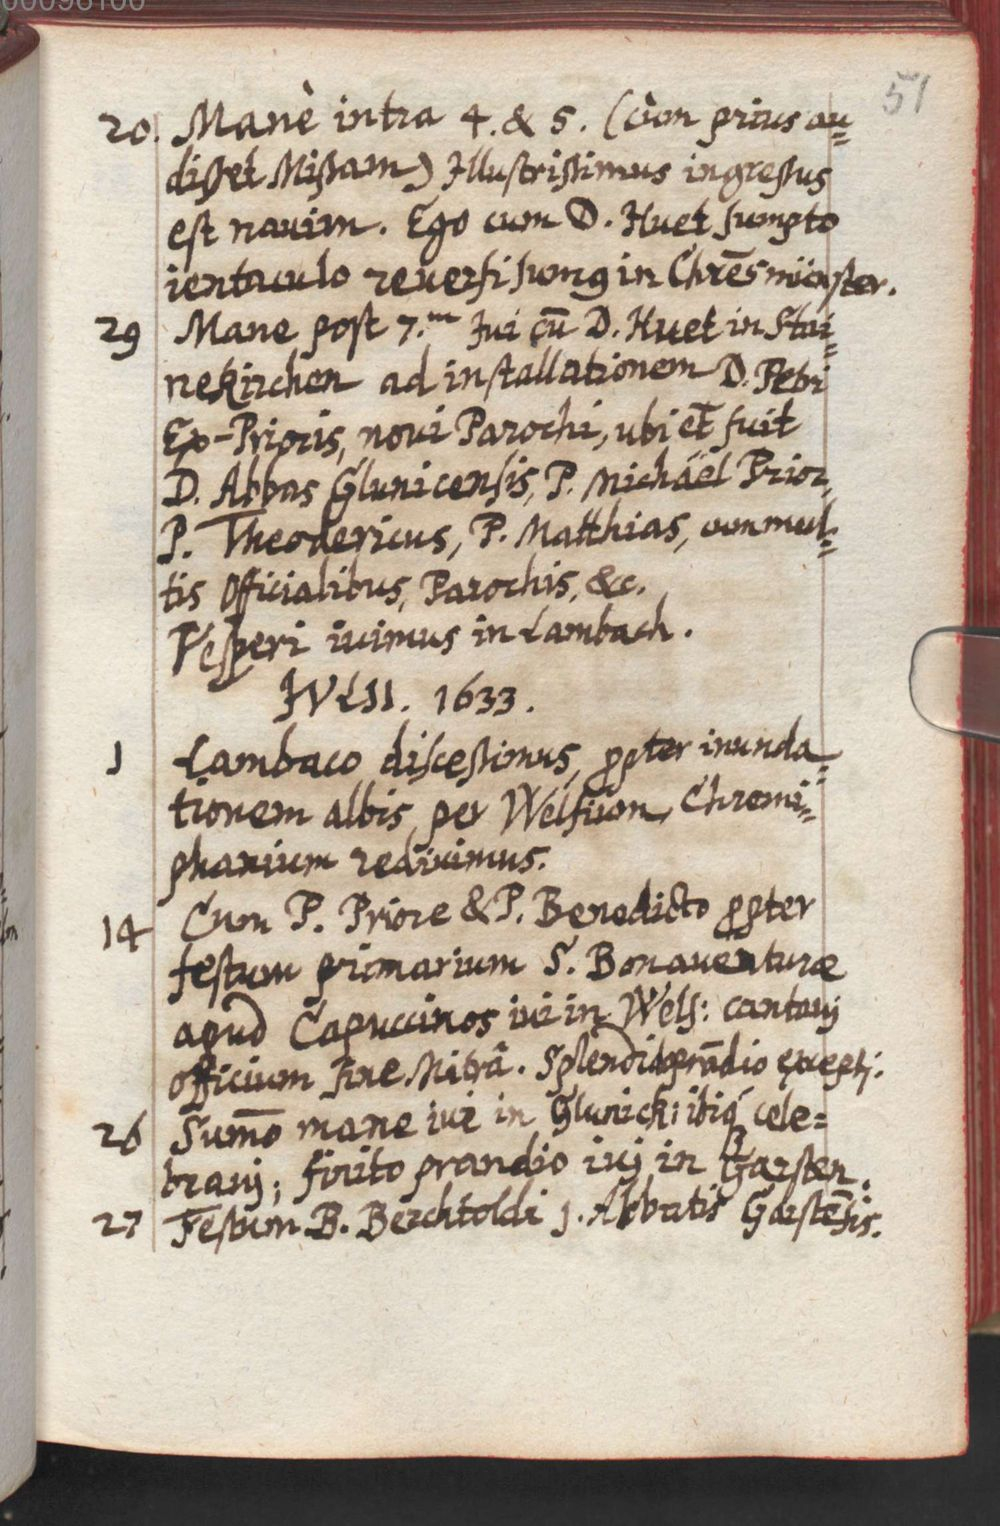 00096100
51
20. Manè intra 4. & 5. (cùm prius au=
disset Missam) Illustrissimus ingressus
est nauim. Ego cum D. Huet sumpto
ientaculo reuersi sumq in Chrēsmünster.
29 Mane post 7.m Iui cū D. Huet in Stai=
nekirchen ad installationem D. Petri
Ex-Prioris, noui Parochi, ubi et̄ fuit
D. Abbas Glunicensis, P. Michäel Prior,
P. Theodericus, P. Matthias, cum mul=
tis Officialibus, Parochis, &c.
Vesperi iuimus in Lambach.
IVLII. 1633.
1 Lambaco discessimus, ppter inunda=
tionem albis, per Welsium, Chremi=
phanium rediuimus.
14 Cum P. Priore & P. Benedicto ppter
festum primarium S. Bonauenturæ
apud Capuccinos iui in Wels: cantaui
officium sine Mitrâ. Splendidè prādio excepti.
26 Sum̄o mane iui in Glunick: ibiq cele=
braui; finito prandio iui in Garsten.
27 Festum B. Berchtoldi 1. Abbatis Garstēsis.